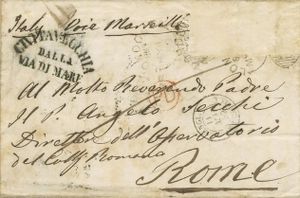 Italy Voie Marseille
CIVITAVECCHIA
DALLA
VIA DI MARE
Al Molto Reverendo Padre
Il P. Angelo Secchi
Direttore dell'Osservatorio
del Coll. Romano
Rome